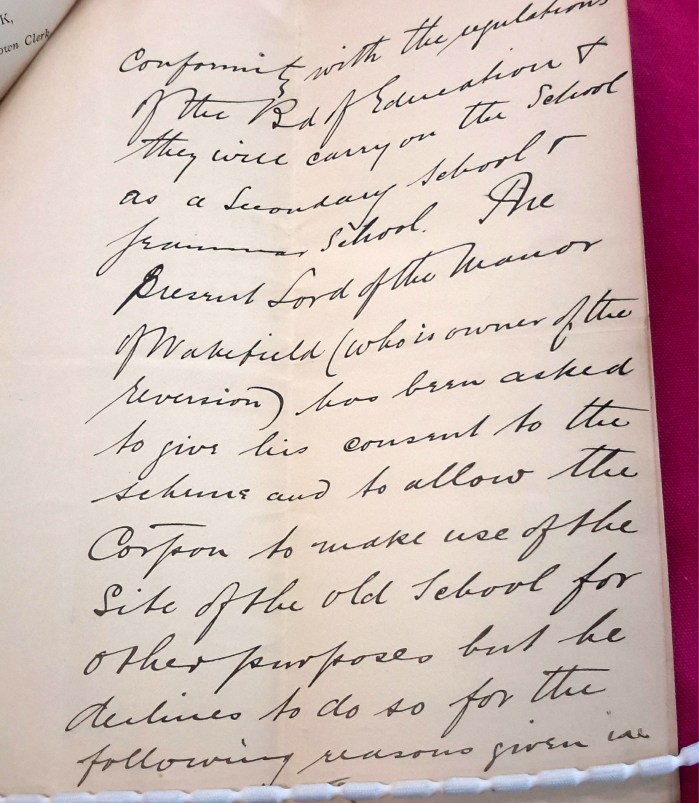 K,
own Clerk
conformity with the regulations
of the Bd of Education &
they will carry on the School
as a Secondary School &
Grammar School. The
present Lord of the Manor
of Wakefield (who is owner of the
reversion) has been asked
to give his consent to the
scheme and to allow the
Corpon to make use of the
Site of the old School for
other purposes but he
declines to do so for the
following reasons given in